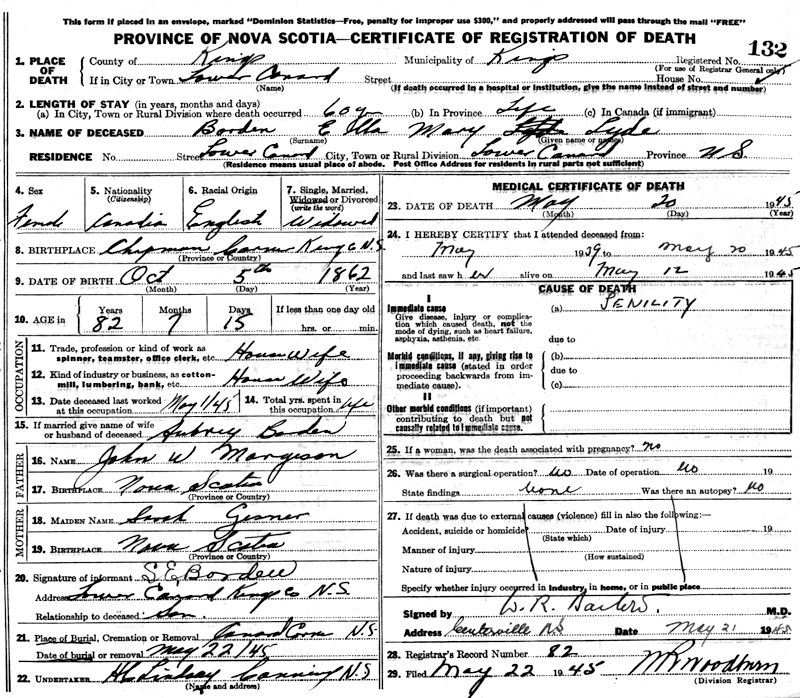 This form if placed in an envelope, marked "Dominion Statistics—Free, penalty for improper use $300," and properly addressed will pass through the mail "FREE"
PROVINCE OF NOVA SCOTIA—CERTIFICATE OF REGISTRATION OF DEATH
132
1. PLACE OF DEATH County of Kings Municipality of Kings Registered No.
(For use of Registrar General only)
If in City or Town Lower Canard Street House No.
(Name) (If death occurred in a hospital or institution, give the name instead of street and number)
2. LENGTH OF STAY (in years, months and days)
(a) In City, Town or Rural Division where death occurred 60y (b) In Province Life (c) In Canada (if immigrant)
3. NAME OF DECEASED Borden Ella Mary Lyde
(Surname) (Given name or names)
RESIDENCE No. Street Lower Canard City, Town or Rural Division Lower Canard Province N.S.
(Residence means usual place of abode. Post Office Address for residents in rural parts not sufficient)
4. Sex 5. Nationality (Citizenship) 6. Racial Origin 7. Single, Married, Widowed or Divorced (write the word)
Female Canadian English Widowed
8. BIRTHPLACE Chipman Corner Kings N.S.
(Province or Country)
9. DATE OF BIRTH Oct 5th 1862
(Month) (Day) (Year)
10. AGE in Years Months Days If less than one day old
82 7 15 hrs. or min.
OCCUPATION
11. Trade, profession or kind of work as spinner, teamster, office clerk, etc. House Wife
12. Kind of industry or business, as cotton-mill, lumbering, bank, etc. House Wife
13. Date deceased last worked at this occupation May 1/45 14. Total yrs. spent in this occupation Life
15. If married give name of wife or husband of deceased Aubrey Borden
FATHER
16. NAME John W Margeson
17. BIRTHPLACE Nova Scotia
(Province or Country)
MOTHER
18. MAIDEN NAME Sarah Gesner
19. BIRTHPLACE Nova Scotia
(Province or Country)
20. Signature of informant S E Borden
Address Lower Canard Kings Co N.S.
Relationship to deceased Son
21. Place of Burial, Cremation or Removal Canard Corner N.S.
Date of burial or removal May 22/45
22. UNDERTAKER Lindsay Canning N S
(Name and address)
MEDICAL CERTIFICATE OF DEATH
23. DATE OF DEATH May 20 1945
(Month) (Day) (Year)
24. I HEREBY CERTIFY that I attended deceased from:
May 1939 to May 20 1945
and last saw her alive on May 12 1945
CAUSE OF DEATH
I
Immediate cause (a) SENILITY
Give disease, injury or complication which caused death, not the mode of dying, such as heart failure, asphyxia, asthenia, etc.
due to
Morbid conditions, if any, giving rise to immediate cause (stated in order proceeding backwards from immediate cause). (b)
due to
(c)
II
Other morbid conditions (if important) contributing to death but not causally related to immediate cause.
25. If a woman, was the death associated with pregnancy? No
26. Was there a surgical operation? No Date of operation No 19
State findings None Was there an autopsy? No
27. If death was due to external causes (violence) fill in also the following:—
Accident, suicide or homicide? Date of injury 19
(State which)
Manner of injury
(How sustained)
Nature of injury
Specify whether injury occurred in Industry, in home, or in public place
Signed by W. R. M.D.
Address Centreville NS Date May 21 1945
28. Registrar's Record Number 82
29. Filed May 22 1945 Woodburn
(Division Registrar)